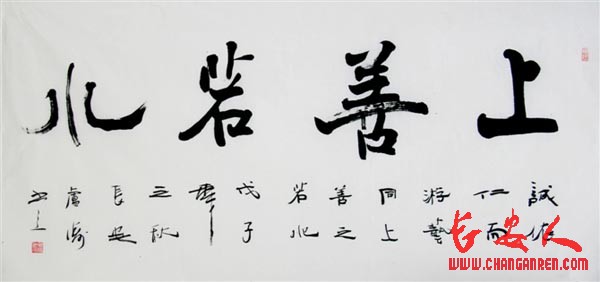 上善若水
誠依
仁而
游藝
同上
善之
若水
戊子
之秋
長安
长安人
WWW.CHANGANREN.COM